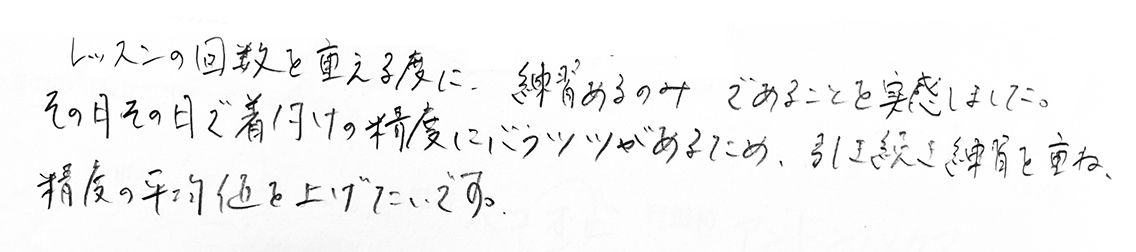 レッスンの回数を重える度に、練習あるのみ であることを実感しました。
その日その日で着付けの精度にバラツツがあるため、引き続き練習を重ね、
精度の平均値を上げたいです。